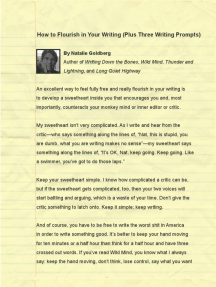 How to Flourish in Your Writing (Plus Three Writing Prompts)
By Natalie Goldberg
Author of Writing Down the Bones, Wild Mind, Thunder and
Lightning, and Long Quiet Highway
An excellent way to feel fully free and really flourish in your writing is
to develop a sweetheart inside you that encourages you and, most
importantly, counteracts your monkey mind or inner editor or critic.
My sweetheart isn't very complicated. As I write and hear from the
critic—who says something along the lines of, "Nat, this is stupid, you
are dumb, what you are writing makes no sense"—my sweetheart says
something along the lines of, "It's OK, Nat, keep going. Keep going. Like
a swimmer, you've got to do those laps."
Keep your sweetheart simple. I know how complicated a critic can be,
but if the sweetheart gets complicated, too, then your two voices will
start battling and arguing, which is a waste of your time. Don't give the
critic something to latch onto. Keep it simple; keep writing.
And of course, you have to be free to write the worst shit in America
in order to write something good. It's better to keep your hand moving
for ten minutes or a half hour than think for a half hour and have three
crossed out words. If you've read Wild Mind, you know what I always
say: keep the hand moving, don't think, lose control, say what you want